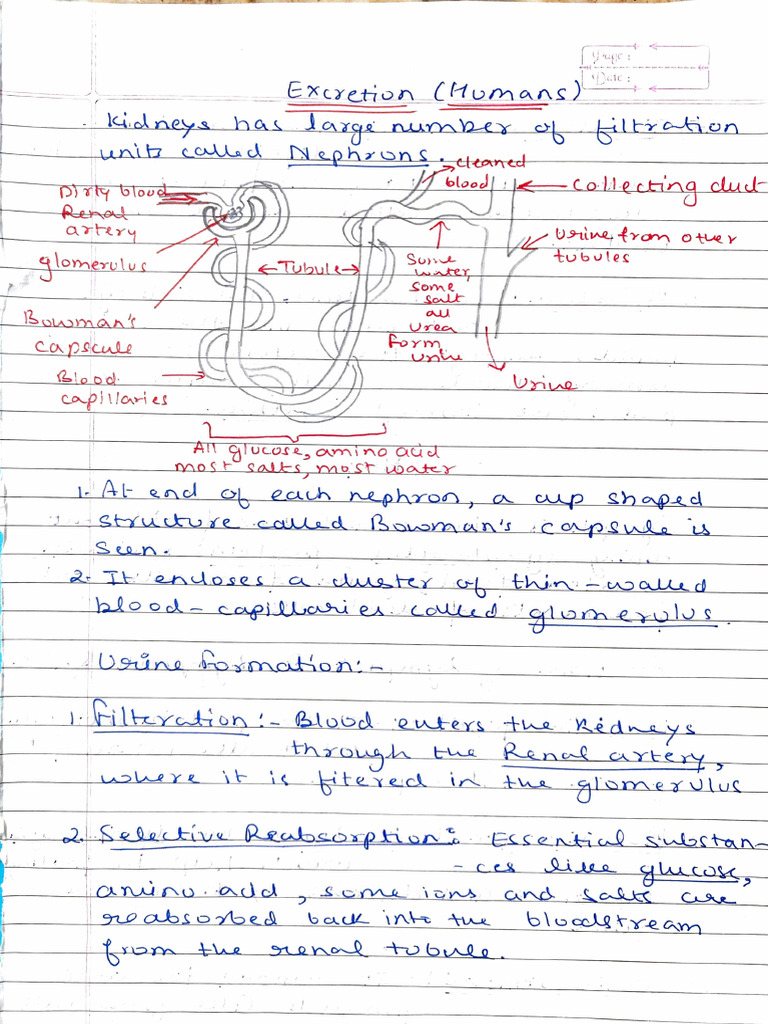 Page :
Date :
Excretion (Humans)
Kidneys has large number of filtration
units called Nephrons.
cleaned
blood
Dirty blood
Renal
artery
collecting duct
glomerulus
Tubule
Urine from other
tubules
Some
water,
some
salt
all
urea
form
urine
Bowman's
capscule
Blood
capillaries
Urine
All glucose, amino acid
most salts, most water
1. At end of each nephron, a cup shaped
structure called Bowman's capsule is
seen.
2. It encloses a cluster of thin-walled
blood-capillaries called glomerulus.
Urine Formation:-
1. Filteration :- Blood enters the Kidneys
through the Renal artery,
where it is fitered in the glomerulus
2. Selective Reabsorption: Essential substan-
-ces like glucose,
amino acid, some ions and salts are
reabsorbed back into the bloodstream
from the renal tubule.